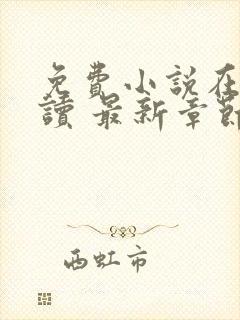 免費小說在
讀 最新章節
西虹市